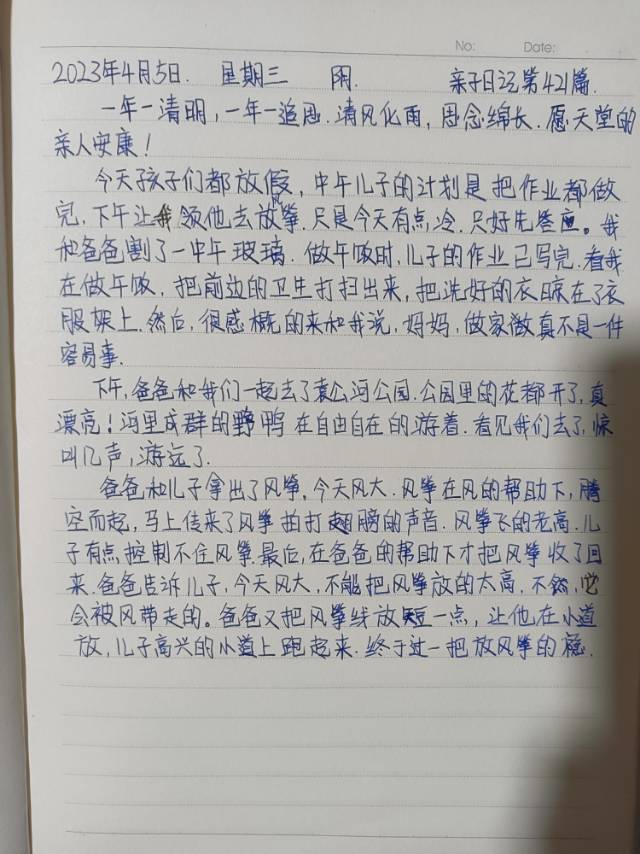 No: Date:
2023年4月5日. 星期三 阴. 亲子日记第421篇.
一年一清明,一年一追思.清风化雨,思念绵长.愿天堂的
亲人安康!
今天孩子们都放假,中午儿子的计划是把作业都做
完,下午让我领他去放筝.只是今天有点冷.只好先答应。我
和爸爸割了一中午玻璃.做午饭时,儿子的作业已写完.看我
在做午饭,把前边的卫生打扫出来,把洗好的衣晾在了衣
服架上.然后,很感概的来和我说,妈妈,做家微真不是一件
容易事.
下午,爸爸和我们一起去了袁公河公园.公园里的花都开了,真
漂亮!河里成群的野鸭在自由自在的游着.看见我们去了,惊
叫几声,游远了.
爸爸和儿子拿出了风筝,今天风大.风筝在风的帮助下,腾
空而起,马上传来了风筝拍打翅膀的声音.风筝飞的老高.儿
子有点控制不住风筝.最后,在爸爸的帮助下才把风筝收了回
来.爸爸告诉儿子,今天风大,不能把风筝放的太高,不然,它
会被风带走的。爸爸又把风筝线放短一点,让他在小道
放,儿子高兴的小道上跑起来.终于过一把放风筝的瘾.